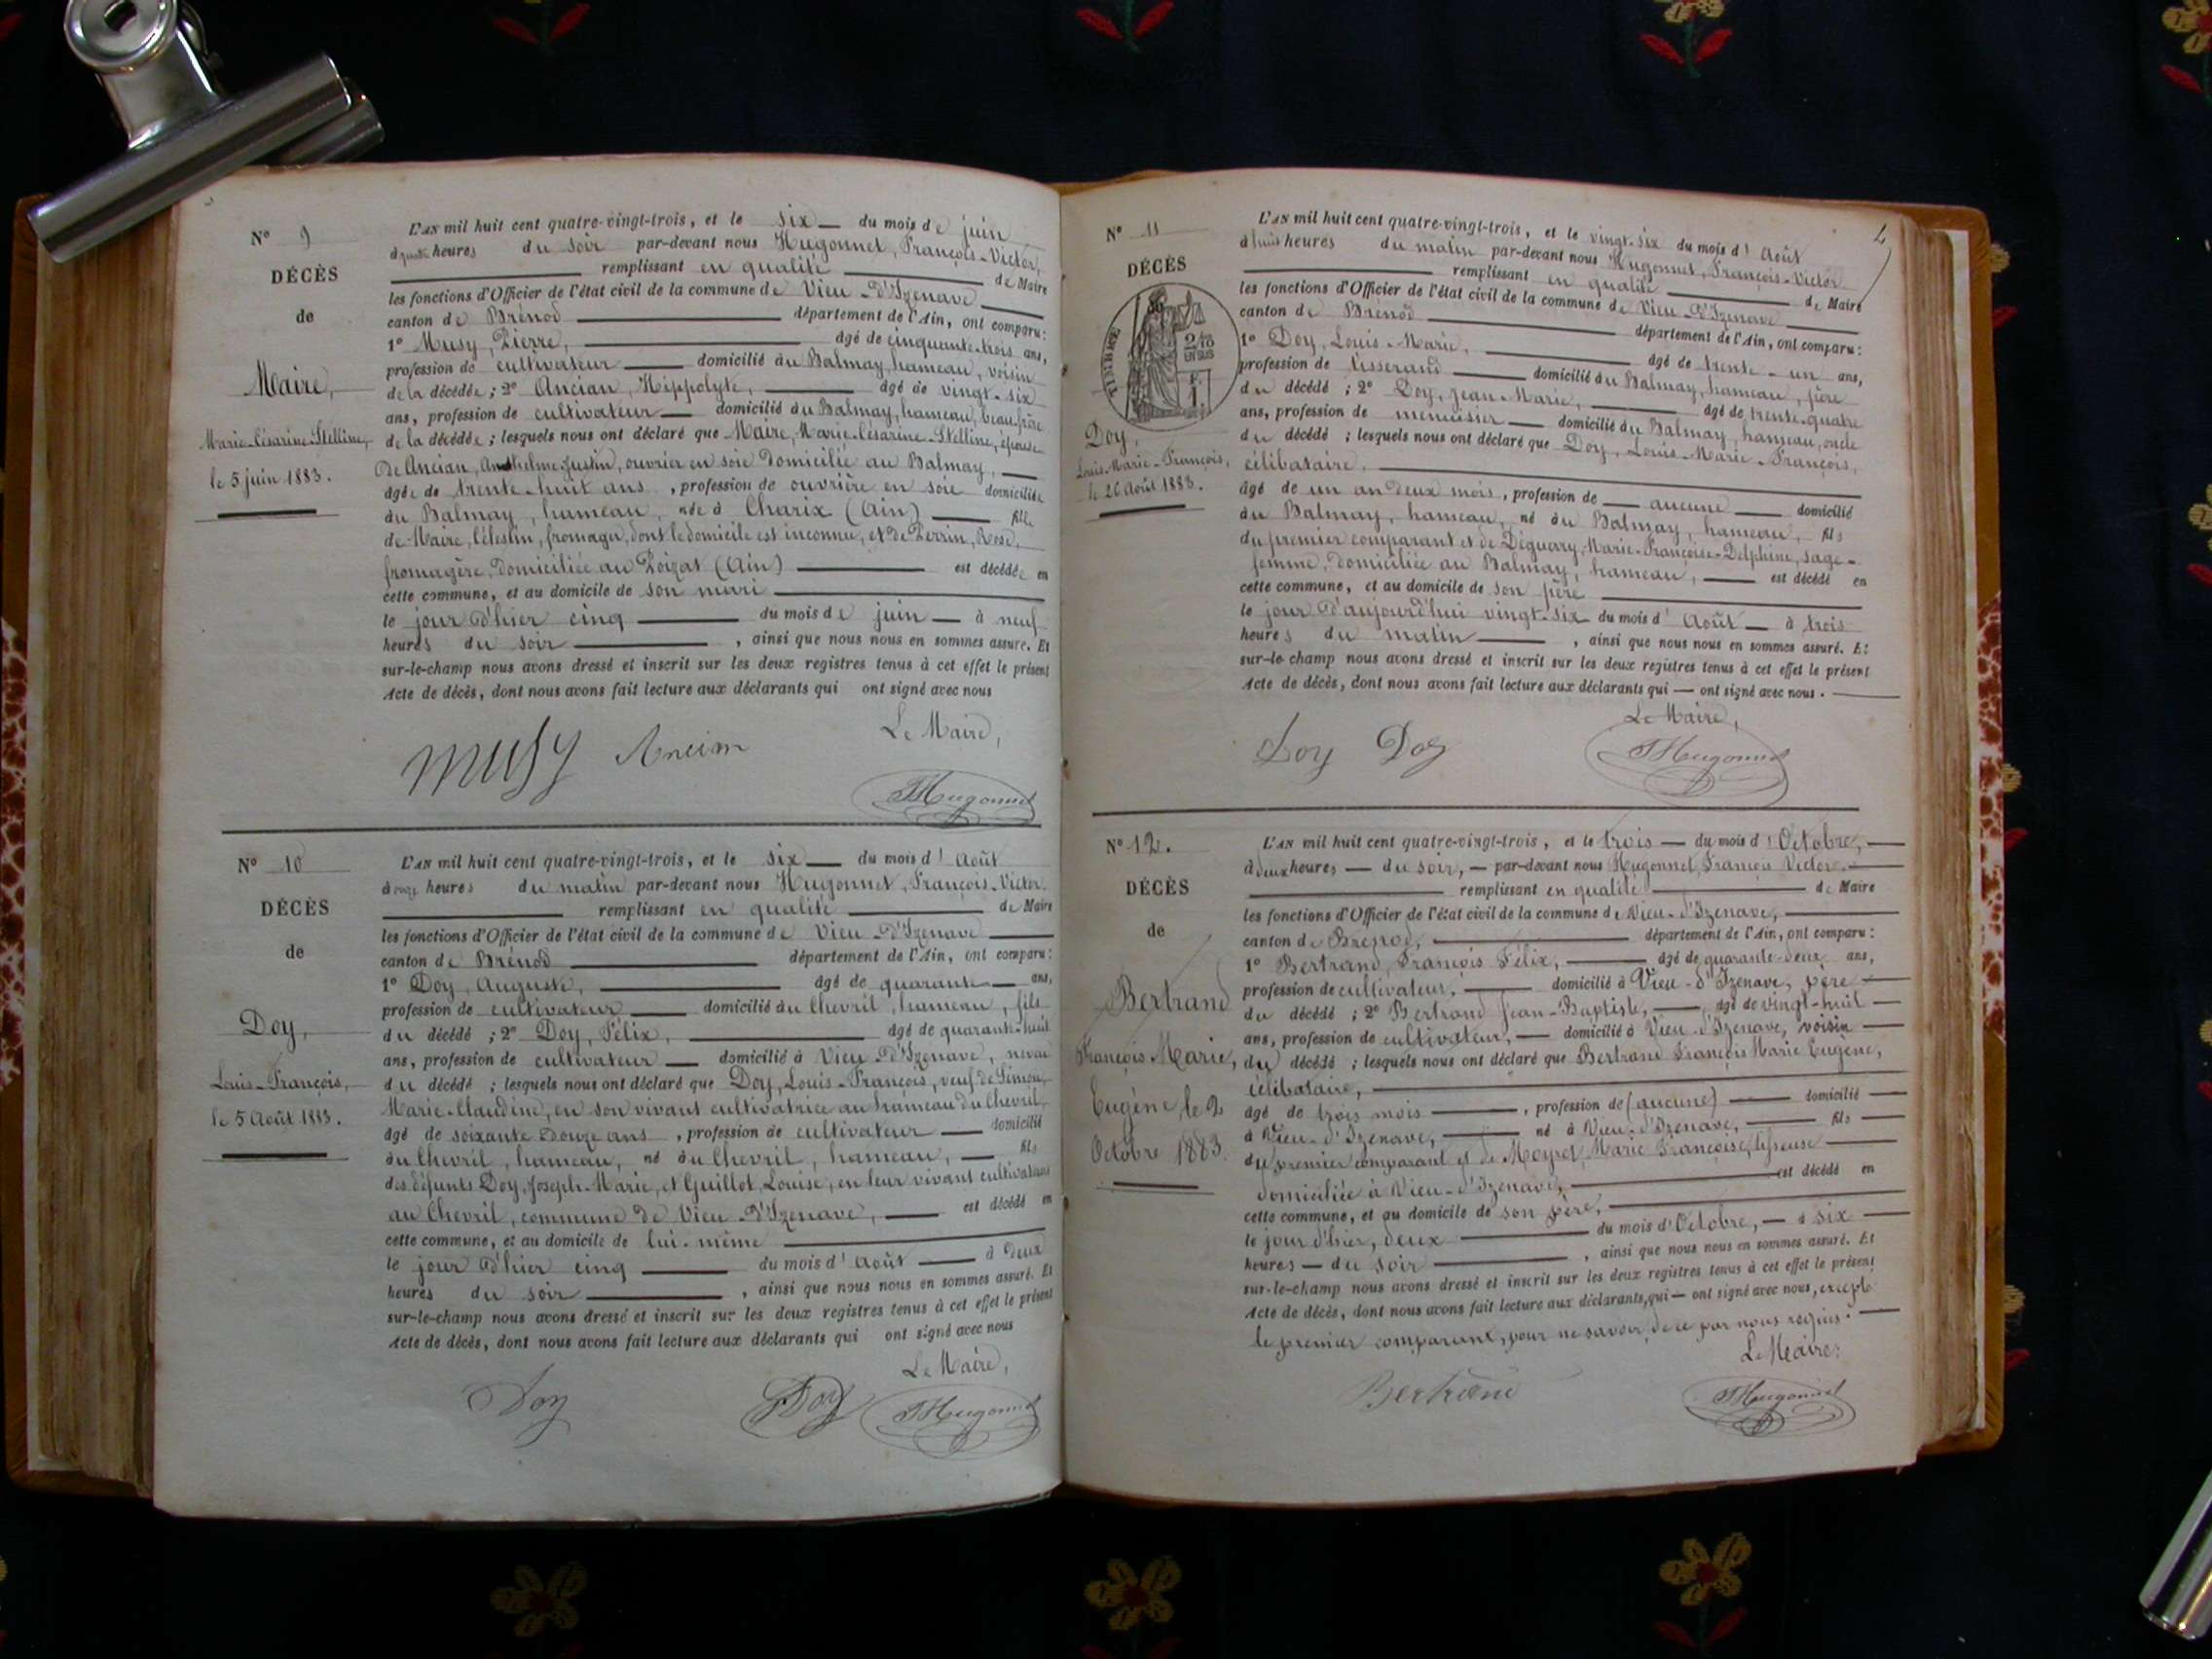 N° 9
DÉCÈS
de
Maire,
Marie-Césarine-Stelline,
le 5 juin 1883.
L'AN mil huit cent quatre-vingt-trois, et le six du mois de juin
à quatre heures du soir par-devant nous Hugonnet, François-Victor,
remplissant en qualité de Maire
les fonctions d'Officier de l'état civil de la commune de Vieu-d'Izenave
canton de Brénod département de l'Ain, ont comparu:
1° Musy, Pierre, âgé de cinquante-trois ans,
profession de cultivateur domicilié au Balmay, hameau, voisin
de la décédée; 2° Ancian, Hippolyte, âgé de vingt-six
ans, profession de cultivateur domicilié au Balmay, hameau, beau-frère
de la décédée; lesquels nous ont déclaré que Maire, Marie-Césarine-Stelline, épouse
de Ancian, Anthelme-Justin, ouvrier en soie domicilié au Balmay,
âgée de trente-huit ans, profession de ouvrière en soie domiciliée
au Balmay, hameau, née à Charix (Ain) fille
de Maire, Célestin, fromager, dont le domicile est inconnu, et de Perrin, Rose,
fromagère, domiciliée au Poizat (Ain) est décédée en
cette commune, et au domicile de son mari
le jour d'hier cinq du mois de juin à neuf
heures du soir, ainsi que nous nous en sommes assuré. Et
sur-le-champ nous avons dressé et inscrit sur les deux registres tenus à cet effet le présent
Acte de décès, dont nous avons fait lecture aux déclarants qui ont signé avec nous
Le Maire,
Musy Ancian
Hugonnet
N° 10
DÉCÈS
de
Doy,
Louis-François,
le 5 Août 1883.
L'AN mil huit cent quatre-vingt-trois, et le six du mois d'Août
à onze heures du matin par-devant nous Hugonnet, François-Victor.
remplissant en qualité de Maire
les fonctions d'Officier de l'état civil de la commune de Vieu-d'Izenave
canton de Brénod département de l'Ain, ont comparu:
1° Doy, Auguste, âgé de quarante ans,
profession de cultivateur domicilié au Chevril, hameau, fils
du décédé; 2° Doy, Félix, âgé de quarante-huit
ans, profession de cultivateur domicilié à Vieu-d'Izenave, neveu
du décédé; lesquels nous ont déclaré que Doy, Louis-François, veuf de Simon,
Marie-Claudine, en son vivant cultivatrice au hameau du Chevril,
âgé de soixante douze ans, profession de cultivateur domicilié
au Chevril, hameau, né au Chevril, hameau, fils
des défunts Doy, Joseph-Marie, et Guillot, Louise, en leur vivant cultivateurs
au Chevril, commune de Vieu-d'Izenave, est décédé en
cette commune, et au domicile de lui-même
le jour d'hier cinq du mois d'Août à deux
heures du soir, ainsi que nous nous en sommes assuré. Et
sur-le-champ nous avons dressé et inscrit sur les deux registres tenus à cet effet le présent
Acte de décès, dont nous avons fait lecture aux déclarants qui ont signé avec nous
Le Maire,
Doy Doy Hugonnet
4
N° 11
DÉCÈS
TIMBRE
2/10
EN SUS
Doy,
Louis-Marie-François,
le 26 Août 1883.
L'AN mil huit cent quatre-vingt-trois, et le vingt-six du mois d'Août
à huit heures du matin par-devant nous Hugonnet, François-Victor
remplissant en qualité de Maire
les fonctions d'Officier de l'état civil de la commune de Vieu-d'Izenave
canton de Brénod département de l'Ain, ont comparu:
1° Doy, Louis-Marie, âgé de trente-un ans,
profession de tisserand domicilié au Balmay, hameau, père
du décédé; 2° Doy, Jean-Marie, âgé de trente-quatre
ans, profession de menuisier domicilié au Balmay, hameau, oncle
du décédé; lesquels nous ont déclaré que Doy, Louis-Marie-François,
célibataire,
âgé de un an deux mois, profession de aucune domicilié
au Balmay, hameau, né au Balmay, hameau, fils
du premier comparant et de Déguery, Marie-Françoise-Delphine, sage-
femme, domiciliée au Balmay, hameau, est décédé en
cette commune, et au domicile de son père
le jour d'aujourd'hui vingt-six du mois d'Août à trois
heures du matin, ainsi que nous nous en sommes assuré. Et
sur-le-champ nous avons dressé et inscrit sur les deux registres tenus à cet effet le présent
Acte de décès, dont nous avons fait lecture aux déclarants qui — ont signé avec nous.
Le Maire,
Doy Doy Hugonnet
N° 12.
DÉCÈS
de
Bertrand
François Marie,
Eugène, le 2
Octobre 1883.
L'AN mil huit cent quatre-vingt-trois, et le trois — du mois d'Octobre,
à deux heures — du soir, — par-devant nous Hugonnet, François Victor.
remplissant en qualité de Maire
les fonctions d'Officier de l'état civil de la commune de Vieu-d'Izenave,
canton de Brénod, département de l'Ain, ont comparu:
1° Bertrand, François Félix, âgé de quarante-deux ans,
profession de cultivateur, domicilié à Vieu-d'Izenave, père
du décédé; 2° Bertrand Jean-Baptiste, âgé de vingt-huit
ans, profession de cultivateur, domicilié à Vieu-d'Izenave, voisin
du décédé; lesquels nous ont déclaré que Bertrand François Marie Eugène,
célibataire,
âgé de trois mois, profession de (aucune) domicilié
à Vieu-d'Izenave, né à Vieu-d'Izenave, fils
du premier comparant et de Meyret, Marie Françoise,
domiciliée à Vieu-d'Izenave, est décédé en
cette commune, et au domicile de son père,
le jour d'hier, deux du mois d'Octobre, — à six
heures — du soir, ainsi que nous nous en sommes assuré. Et
sur-le-champ nous avons dressé et inscrit sur les deux registres tenus à cet effet le présent
Acte de décès, dont nous avons fait lecture aux déclarants, qui — ont signé avec nous, excepté
le premier comparant, pour ne savoir, de ce par nous requis.
Le Maire:
Bertrand Hugonnet